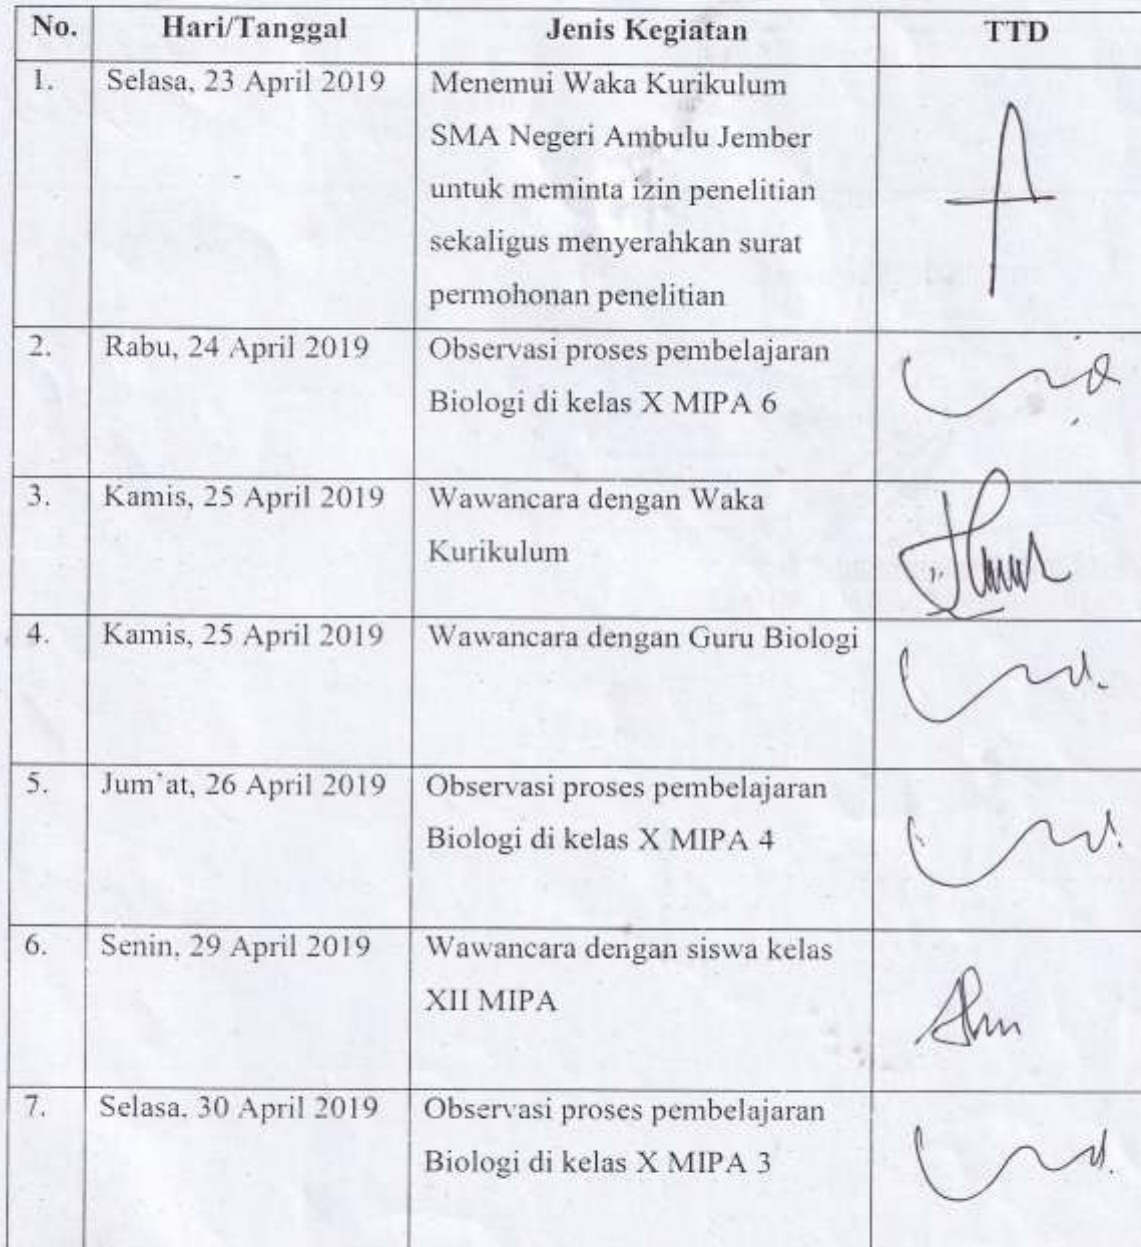 No. Hari/Tanggal Jenis Kegiatan TTD
1. Selasa, 23 April 2019 Menemui Waka Kurikulum
SMA Negeri Ambulu Jember
untuk meminta izin penelitian
sekaligus menyerahkan surat
permohonan penelitian
2. Rabu, 24 April 2019 Observasi proses pembelajaran
Biologi di kelas X MIPA 6
3. Kamis, 25 April 2019 Wawancara dengan Waka
Kurikulum
4. Kamis, 25 April 2019 Wawancara dengan Guru Biologi
5. Jum'at, 26 April 2019 Observasi proses pembelajaran
Biologi di kelas X MIPA 4
6. Senin, 29 April 2019 Wawancara dengan siswa kelas
XII MIPA
7. Selasa, 30 April 2019 Observasi proses pembelajaran
Biologi di kelas X MIPA 3